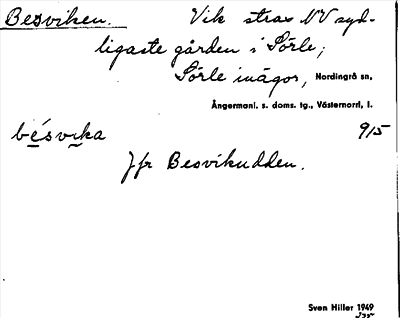 Besviken. Vik strax NV syd-
ligaste gården i Sörle;
Sörle inägor, Nordingrå sn,
Ångermanl. s. doms. tg., Västernorrl, l.
bésvika 9/5
Jfr Besvikudden.
Sven Hiller 1949